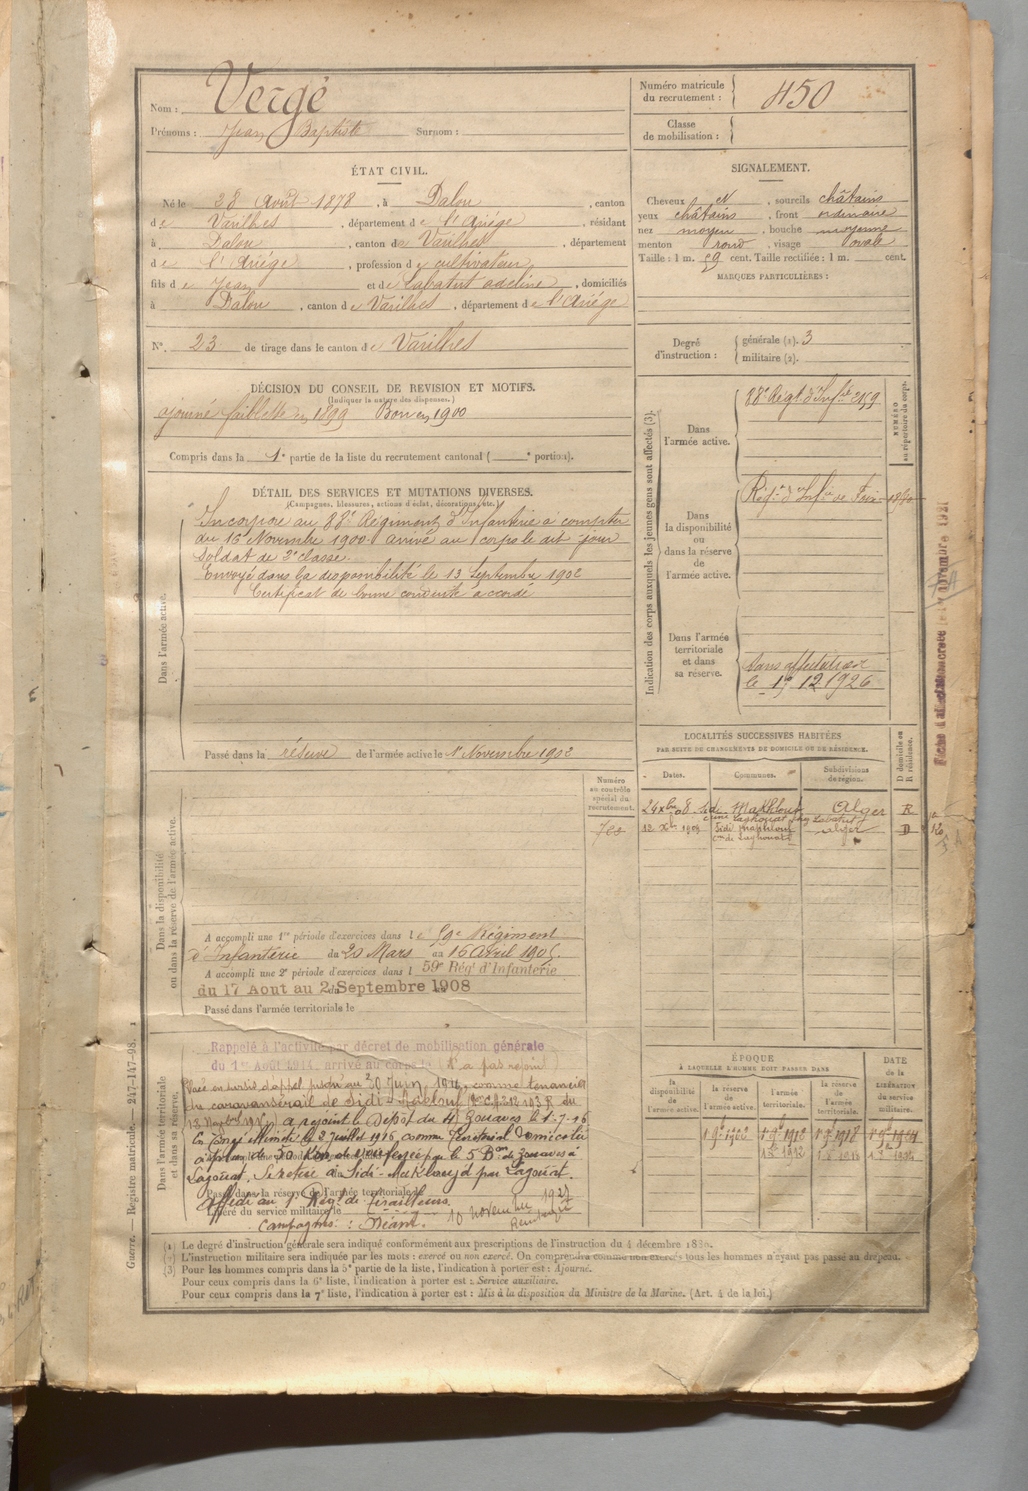 Nom : Vergé
Prénoms : Jean Baptiste Surnom :
Numéro matricule du recrutement : 450
Classe de mobilisation :
ÉTAT CIVIL.
Né le 28 Août 1878, à Dalou, canton
de Varilhes, département de l'Ariége, résidant
à Dalou, canton de Varilhes, département
de l'Ariége, profession de cultivateur
fils de Jean et de Labatut adeline, domiciliés
à Dalou, canton de Varilhes, département de l'Ariége
N° 23 de tirage dans le canton de Varilhes
SIGNALEMENT.
Cheveux N, sourcils châtains
yeux châtains, front ordinaire
nez moyen, bouche moyenne
menton rond, visage ovale
Taille : 1 m. 59 cent. Taille rectifiée : 1 m. cent.
MARQUES PARTICULIÈRES :
Degré d'instruction : générale (1). 3
militaire (2).
DÉCISION DU CONSEIL DE REVISION ET MOTIFS.
(Indiquer la nature des dispenses.)
ajourné faiblesse en 1899 Bon en 1900
Compris dans la 1e partie de la liste du recrutement cantonal ( e portion).
DÉTAIL DES SERVICES ET MUTATIONS DIVERSES.
(Campagnes, blessures, actions d'éclat, décorations, etc.)
Dans l'armée active.
Incorporé au 88e Régiment d'Infanterie à compter
du 16 Novembre 1900. arrivé au corps le dit jour
Soldat de 2e classe.
Envoyé dans la disponibilité le 13 Septembre 1902
Certificat de bonne conduite accordé
Passé dans la réserve de l'armée active le 1er Novembre 1902
Indication des corps auxquels les jeunes gens sont affectés (3).
NUMÉRO au répertoire du corps.
Dans l'armée active.
88e Régt d'Infie
Dans la disponibilité ou dans la réserve de l'armée active.
Régt d'Infie de Foix
Dans l'armée territoriale et dans sa réserve.
Sans affectation
le 19 12 1926
Fiche d'affectation créée le novembre 1921
LOCALITÉS SUCCESSIVES HABITÉES
PAR SUITE DE CHANGEMENTS DE DOMICILE OU DE RÉSIDENCE.
Dates. Communes. Subdivisions de région. D domicile ou R résidence.
24 Xbre 08 Sidi Makhlouf Alger R
cne Laghouat chez Labatut J
12 Xbre 1909 Sidi Makhlouf Alger D
cne de Laghouat
Numéro au contrôle spécial du recrutement.
Dans la disponibilité ou dans la réserve de l'armée active.
A accompli une 1re période d'exercices dans le 59e Régiment
d'Infanterie du 20 Mars au 16 Avril 1905.
A accompli une 2e période d'exercices dans l 59e Régt d'Infanterie
du 17 Aout au 2 Septembre 1908
Passé dans l'armée territoriale le
Dans l'armée territoriale et dans sa réserve.
Rappelé à l'activité par décret de mobilisation générale
du 1er Août 1914. arrivé au corps le (N'a pas rejoint)
Placé en sursis d'appel jusqu'au 30 Juin 1916, comme tenancier
du caravansérail de Sidi-Makelouf
a rejoint le Dépôt du 4e Zouaves le 1-7-16
à plus de 50 Km
par le 5 Bon de Zouaves à
Lagouat. Se retire à Sidi-Makhlouf par Lagouat.
Passé dans la réserve de l'armée territoriale le
affecté au 1er Régt de Tirailleurs
Libéré du service militaire le 10 novembre 1927
Campagnes : Néant.
ÉPOQUE
À LAQUELLE L'HOMME DOIT PASSER DANS
la disponibilité de l'armée active. la réserve de l'armée active. l'armée territoriale. la réserve de l'armée territoriale.
DATE de la LIBÉRATION du service militaire.
Guerre. — Registre matricule. — 247-147-98.
(1) Le degré d'instruction générale sera indiqué conformément aux prescriptions de l'instruction du 4 décembre 1830.
(2) L'instruction militaire sera indiquée par les mots : exercé ou non exercé. On comprendra comme non exercés tous les hommes n'ayant pas passé au drapeau.
(3) Pour les hommes compris dans la 5e partie de la liste, l'indication à porter est : Ajourné.
Pour ceux compris dans la 6e liste, l'indication à porter est : Service auxiliaire.
Pour ceux compris dans la 7e liste, l'indication à porter est : Mis à la disposition du Ministre de la Marine. (Art. 4 de la loi.)